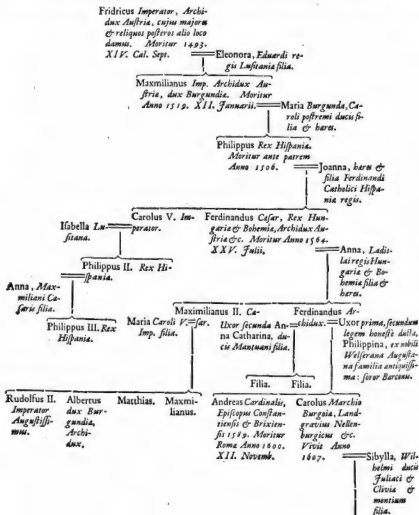 Fridricus Imperator, Archi-
dux Austriæ, cujus majores
& reliquos posteros alio loco
damus. Moritur 1493.
XIV. Cal. Sept.
Eleonora, Eduardi re-
gis Lusitaniæ filia.
Maxmilianus Imp. Archidux Au-
striæ, dux Burgundiæ. Moritur
Anno 1519. XII. Januarii.
Maria Burgunda, Ca-
roli postremi ducis fi-
lia & hæres.
Philippus Rex Hispaniæ.
Moritur ante patrem
Anno 1506.
Joanna, hæres &
filia Ferdinandi
Catholici Hispa-
niæ regis.
Carolus V. Im-
perator.
Ferdinandus Cæsar, Rex Hun-
gariæ & Bohemiæ, Archidux Au-
striæ &c. Moritur Anno 1564.
XXV. Julii.
Isabella Lu-
sitana.
Anna, Ladis-
lai regis Hun-
gariæ & Bo-
hemiæ filia &
hæres.
Philippus II. Rex Hi-
spaniæ.
Anna, Max-
miliani Cæ-
saris filia.
Philippus III. Rex
Hispaniæ.
Maximilianus II. Cæ-
sar.
Maria Caroli V.
Imp. filia.
Ferdinandus Ar-
chidux.
Uxor secunda An-
na Catharina, du-
cis Mantuani filia.
Uxor prima, secundum
legem honestè ducta,
Philippina, ex nobili
Welserana Augusta-
na familia antiquissi-
ma: soror Baronis.
Filia. Filia.
Rudolfus II.
Imperator
Augustissi-
mus.
Albertus
dux Bur-
gundiæ,
Archi-
dux.
Matthias.
Maxmi-
lianus.
Andreas Cardinalis,
Episcopus Constan-
tiensis & Brixien-
sis 1589. Moritur
Romæ Anno 1600.
XII. Novemb.
Carolus Marchio
Burgoiæ, Land-
gravius Nellen-
burgicus &c.
Vivit Anno
1607.
Sibylla, Wil-
helmi ducis
Juliaci &
Cliviæ &
montium
filia.